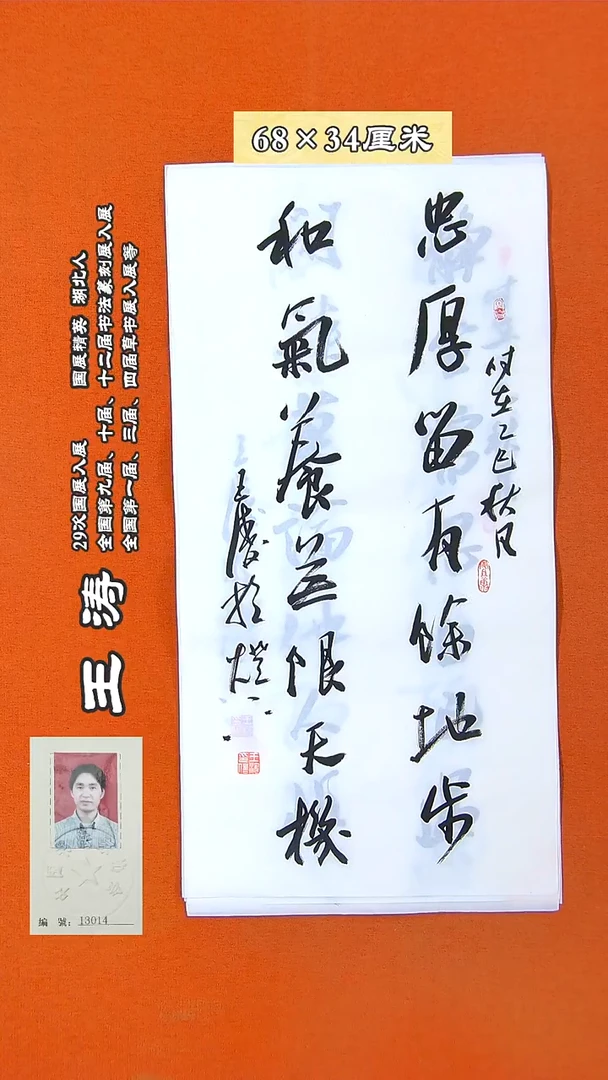 68×34厘米
时在乙巳秋月
忠厚留有餘地步
和氣養無限天機
王濤於燈下
29次国展入展 国展精英 湖北人
全国第九届、十届、十二届书法篆刻展入展
全国第一届、三届、四届草书展入展等
王涛
編 號: 13014